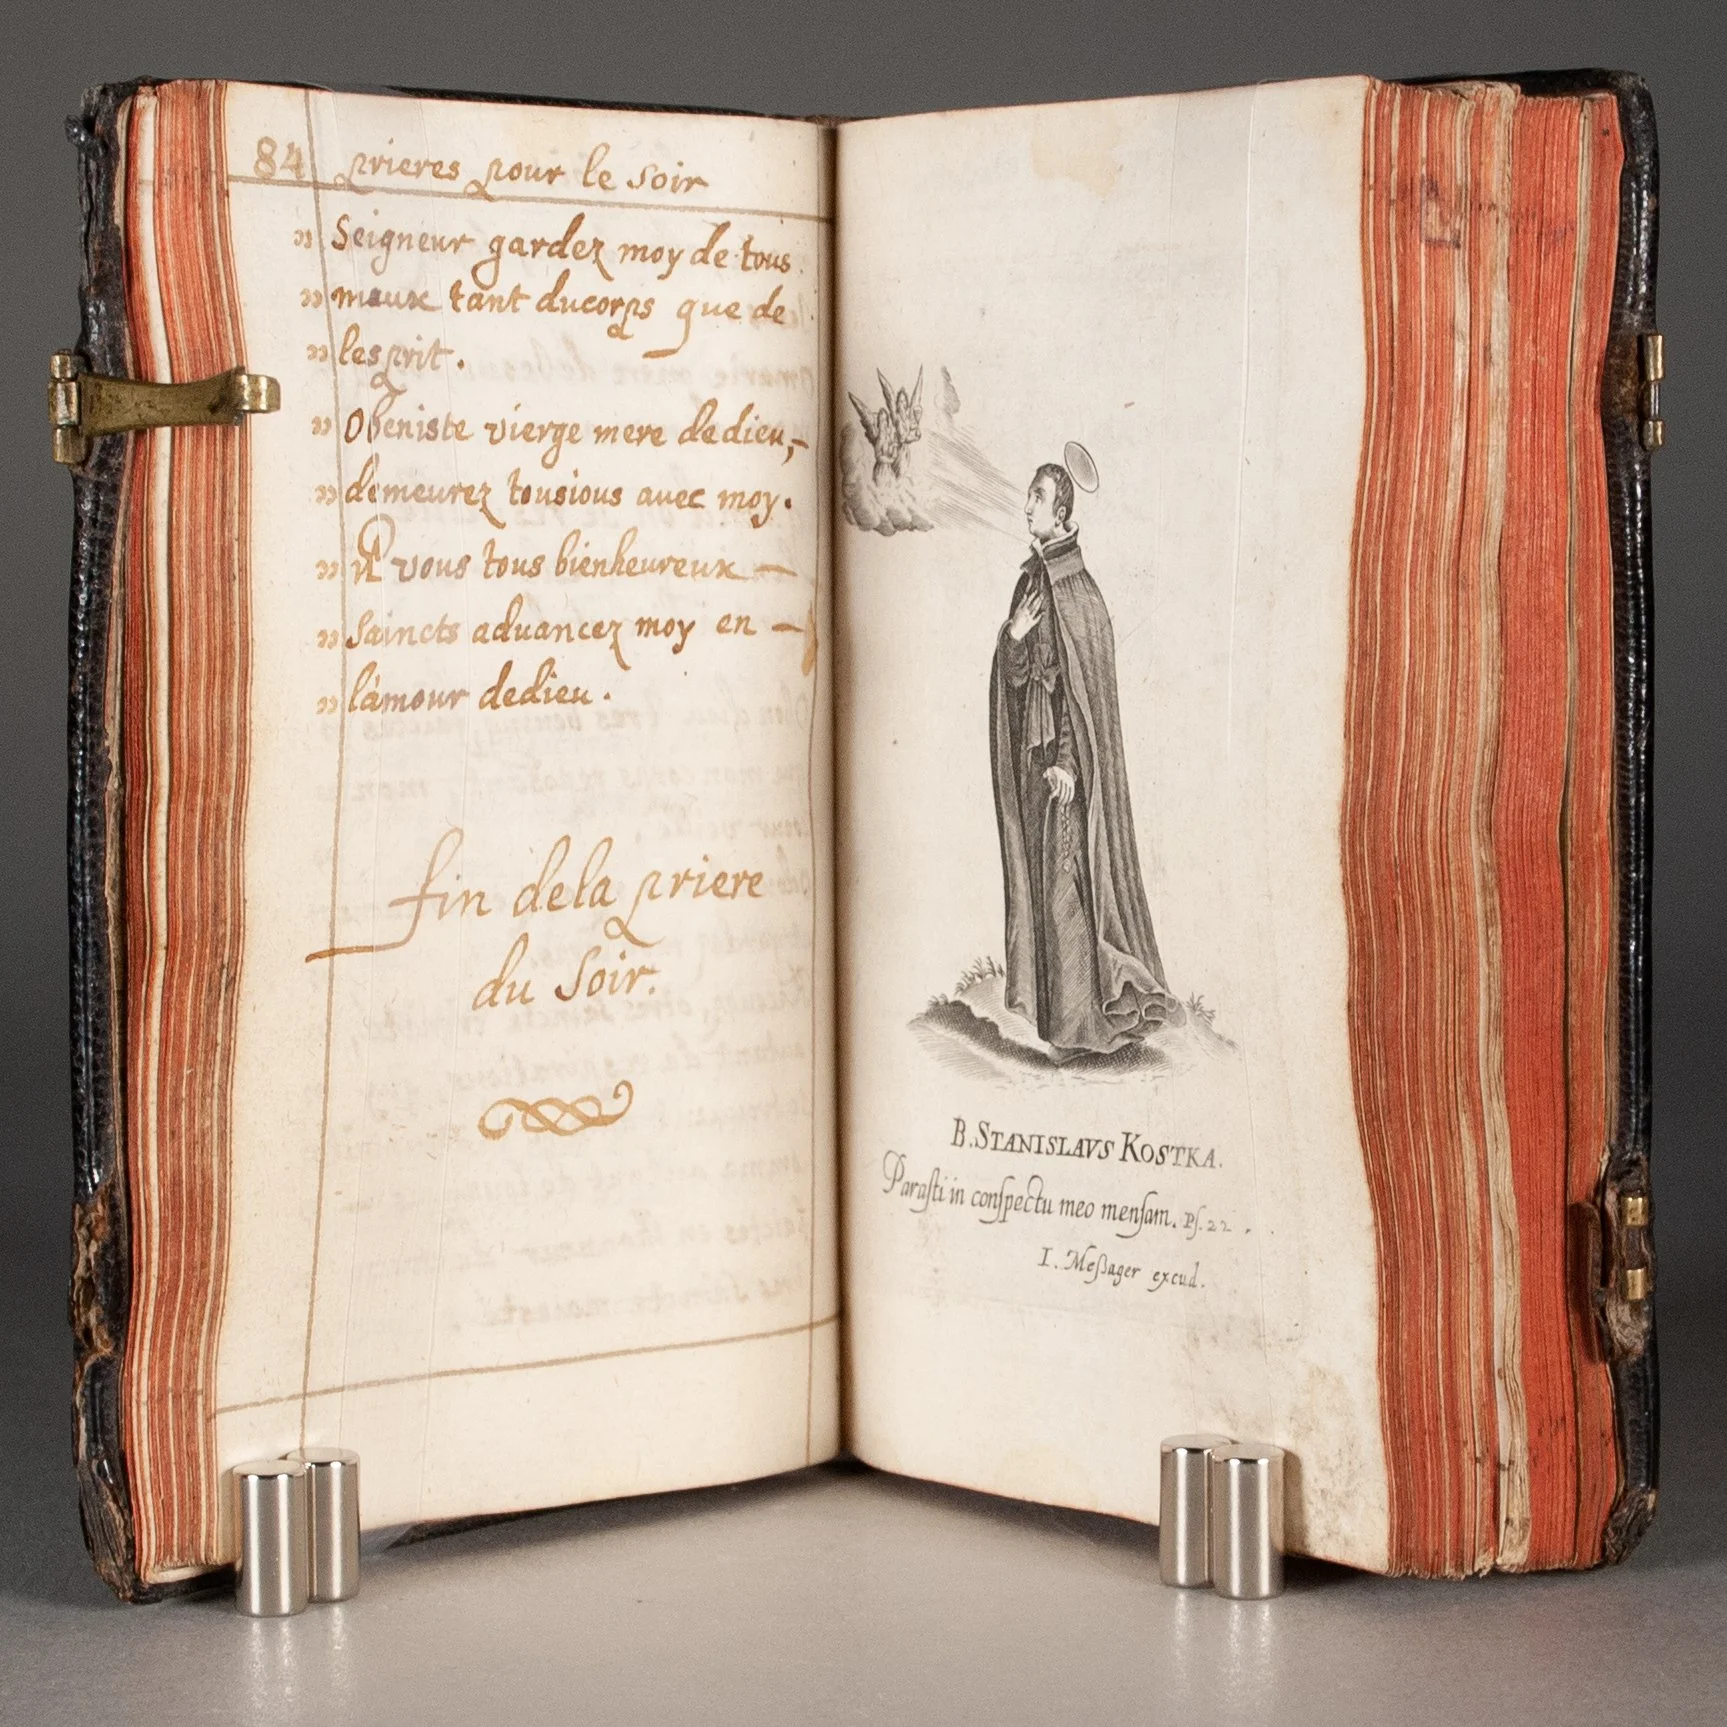 84 prieres pour le soir
" Seigneur gardez moy de tous
" maux tant ducorps que de
" lesprit.
" Obeniste vierge mere dedieu,-
" demeurez tousious avec moy.
" Et vous tous bienheureux —
" Saincts aduancez moy en —
" lamour dedieu.
fin dela priere
du Soir.
B. STANISLAVS KOSTKA.
Parasti in conſpectu meo menſam. Pſ. 22.
I. Meßager excud.